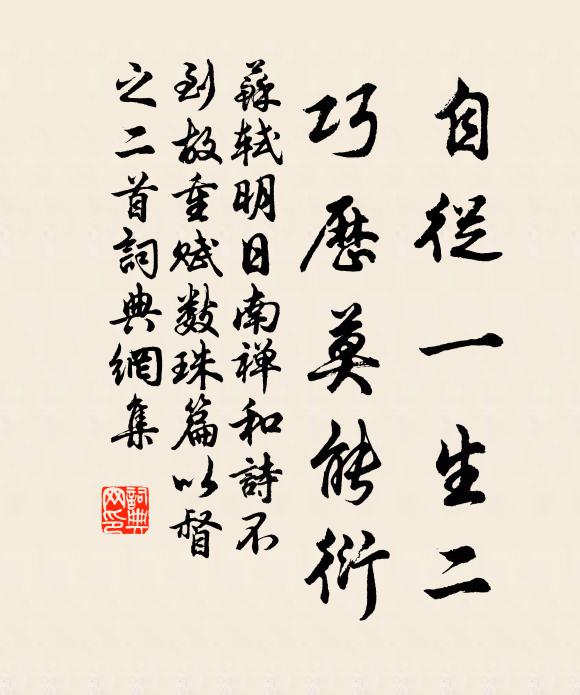 自從一生二
巧歷莫能衍
蘇軾明日南禅和詩不
到故重賦數珠篇以督
之二首詞典網集
詞典网印